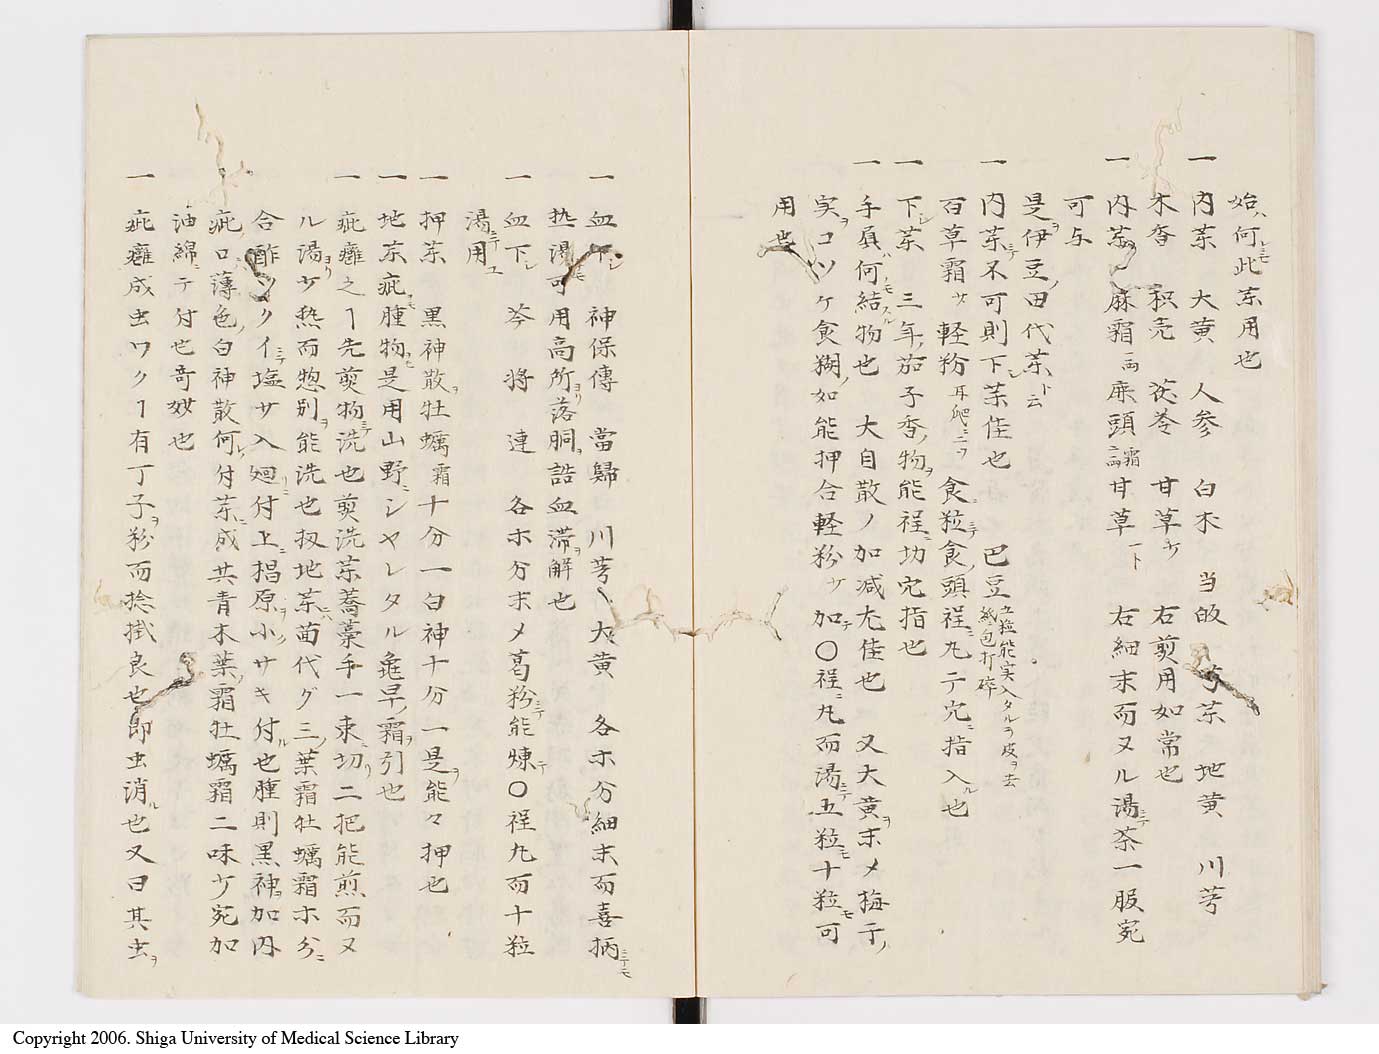 始ハ何レモ此茶用也
一 内茶 大黄 人参 白木 当皈 芍茶 地黄 川芎
木香 枳壳 茯苓 甘草 右煎用如常也
一 内茶 麻霜 一両 鹿頭 霜 甘草 一ト 右細末而ヌル湯ニテ茶一服宛
可与
是ヲ伊豆田代茶ト云
一 内茶ニテ不可則下茶佳也 巴豆 立粒能実入タルヲ皮ヲ去 紙包打碎
百草霜 軽粉 耳爬ニ二ツ 食粒ニテ食頭程ニ丸テ穴ニ指入ル也
一 下シ茶 三年茄子香物ヲ能程ニ切穴指也
一 手負何ノ結物也 大自散ノ加减尤佳也 又大黄ヲ末メ梅干
実ヲコソケ食糊如能押合軽粉 加テ〇程ニ丸而湯ニテ五粒モ十粒モ可
用也
一 血下シ 神保傳 當歸 川芎 大黄 各ホ分細末而喜柄ニテモ
热湯ニモ可用高所ヨリ落胴詰血滞ヲ解也
一 血下シ 芩 将 連 各ホ分末メ葛粉ニテ能煉テ〇程丸而十粒
湯ニテ用ユ
一 押茶 黒神散ヲ牡蠣霜十分一白神十分一是ヲ能々押也
一 地茶疵腫物モ是用山野ニシヤレタル亀早霜ヲ引也
一 疵癰之ヿ先煎物ニテ洗也煎洗茶蕎藁手一束ニ切リ二把能煎而ヌ
ル湯ヨリ 热而惣別ヲ能洗也扨地茶ニハ苗代グミノ葉霜牡蠣霜ホ分ニ
合酢ツクイニテ塩 入廻リニ付上ニ椙原ヲ小サキ付ル也腫則黒神ヲ加内
疵口薄色白神散何レ付茶ニ成共青木葉霜牡蠣霜二味 宛加
油綿ニテ付也奇妙也
一 疵癰成虫ワクヿ有丁子ヲ粉而捻掛良也即虫消ル也又曰其虫ヲ
Copyright 2006. Shiga University of Medical Science Library